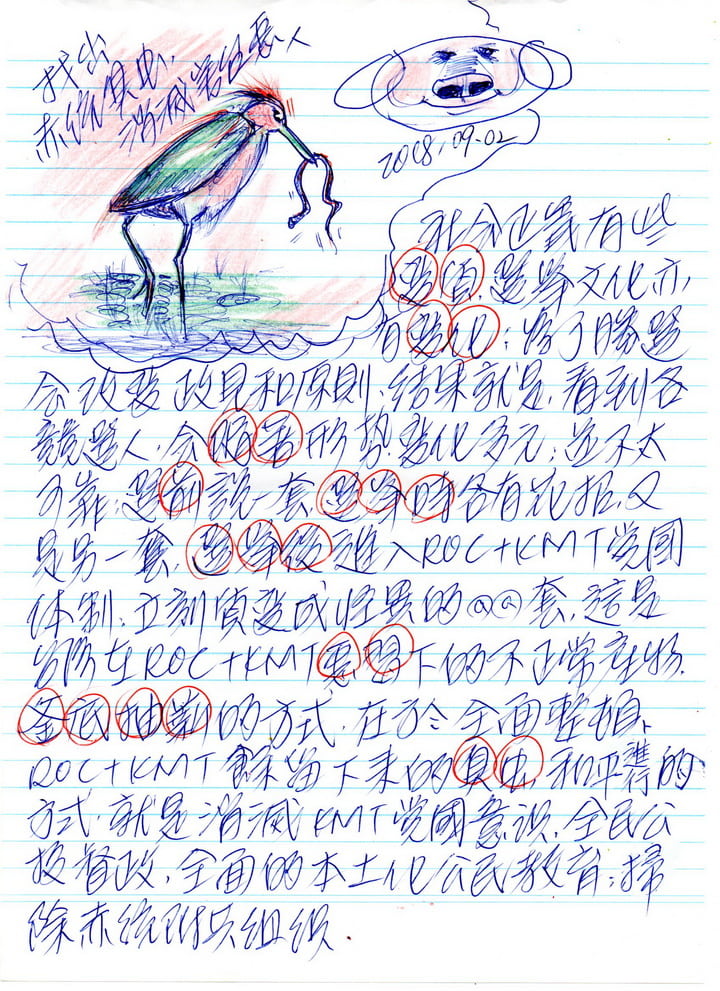 找出
赤統臭虫,
消滅當任惡人
2018.09.02
社會正義有些
選舉文化亦
有變化;為了勝選
會改變政見和原則,結果就是,看到各
競選人,會隨著形勢變化多元;並不太
可靠;選前說一套,選舉時各有花招,又
是另一套,選舉後進入ROC+KMT党國
体制,立刻變成怪異的@@套,這是
台灣在ROC+KMT惡習下的不正常產物.
釜底抽薪的方式,在於全面整頓,
ROC+KMT餘留下來的臭虫,和平準的
方式,就是消滅KMT党國意识,全民公
投督政,全面的本土化公民教育;掃
除赤統附共組织.